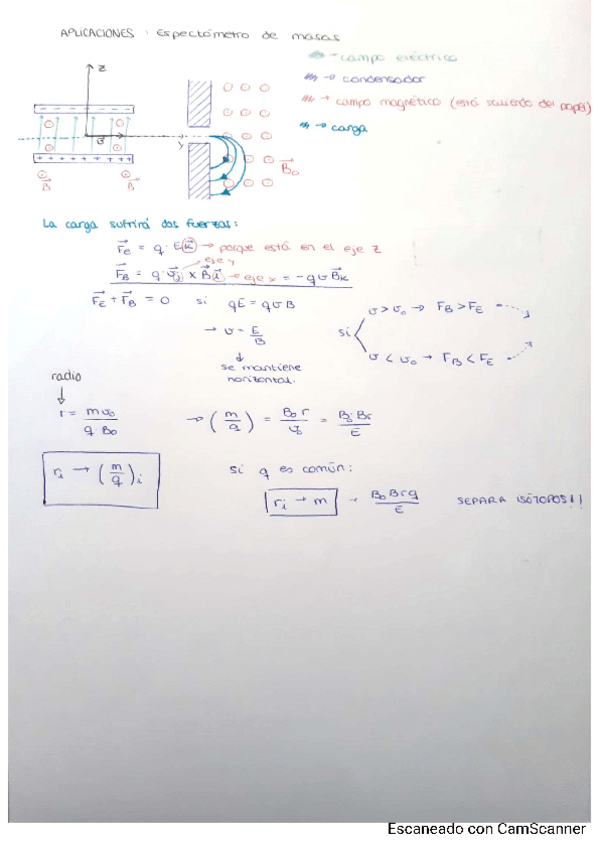 APLICACIONES : Espectómetro de masas
→ campo eléctrico
→ condensador
→ campo magnético (está saliendo del papel)
→ carga
z
- - - - - - - -
+ + + + + + + + +
y
B⃗ B⃗
B⃗₀
La carga sufrirá dos fuerzas:
F⃗E = q · E k⃗ → porque está en el eje z
eje y
F⃗B = q · v j⃗ × B i⃗ → eje x = - q v B k⃗
F⃗E + F⃗B = 0 si qE = q v B
→ v = E/B
↓
se mantiene
horizontal.
si
v > v₀ → FB > FE
v < v₀ → FB < FE
radio
↓
r = m v₀ / q B₀ → (m/q) = B₀ r / v₀ = B₀ B r / E
rᵢ → (m/q)ᵢ
si q es común:
rᵢ → m → B₀ B r q / E SEPARA ISÓTOPOS!!
Escaneado con CamScanner